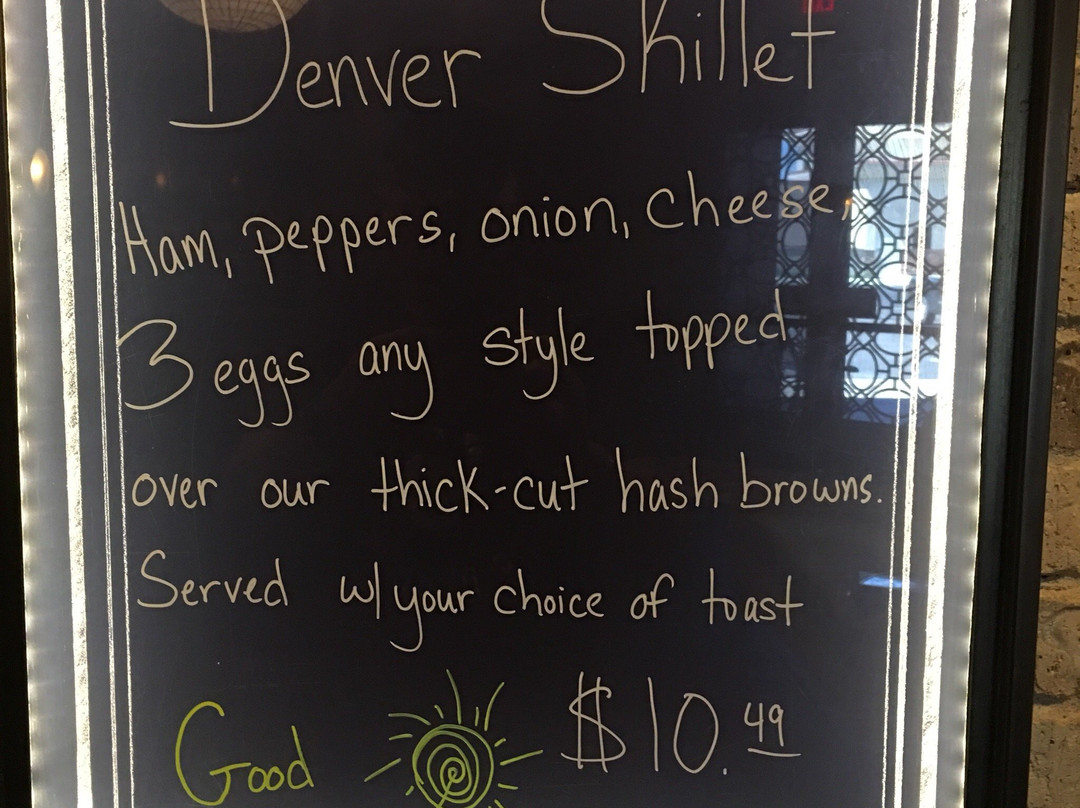 Denver Skillet
Ham, peppers, onion, cheese,
3 eggs any style topped
over our thick-cut hash browns.
Served w/ your choice of toast
Good $10.49